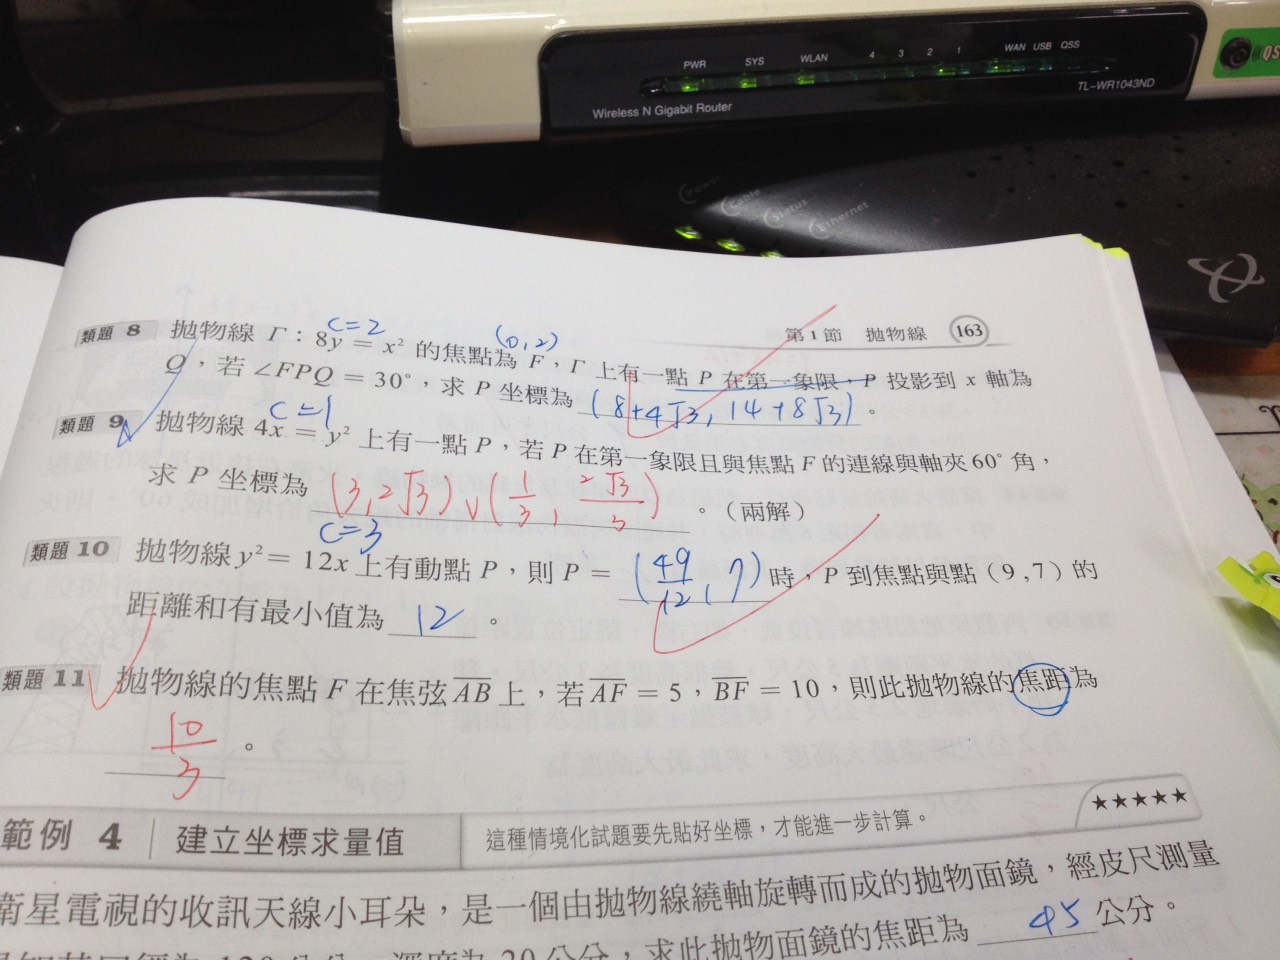 PWR SYS WLAN 4 3 2 1 WAN USB QSS
QS
Wireless N Gigabit Router
TL-WR1043ND
Power
Cable
Status
Ethernet
第1節 拋物線 163
c=2 (0,2)
類題 8 拋物線 Γ:8y = x² 的焦點為 F,Γ 上有一點 P 在第一象限,P 投影到 x 軸為
Q,若 ∠FPQ = 30°,求 P 坐標為 (8+4√3, 14+8√3)。
c=1
類題 9 拋物線 4x = y² 上有一點 P,若 P 在第一象限且與焦點 F 的連線與軸夾 60° 角,
求 P 坐標為 (3, 2√3) ∨ (1/3, 2√3/3)。(兩解)
c=3
類題 10 拋物線 y² = 12x 上有動點 P,則 P = (49/12, 7) 時,P 到焦點與點(9,7)的
距離和有最小值為 12。
類題 11 拋物線的焦點 F 在焦弦 A̅B̅ 上,若 A̅F̅ = 5,B̅F̅ = 10,則此拋物線的焦距為
10/3。
範例 4 建立坐標求量值 這種情境化試題要先貼好坐標,才能進一步計算。 ★★★★★
衛星電視的收訊天線小耳朵,是一個由拋物線繞軸旋轉而成的拋物面鏡,經皮尺測量
為 120 公分,深度為 20 公分,求此拋物面鏡的焦距為 45 公分。